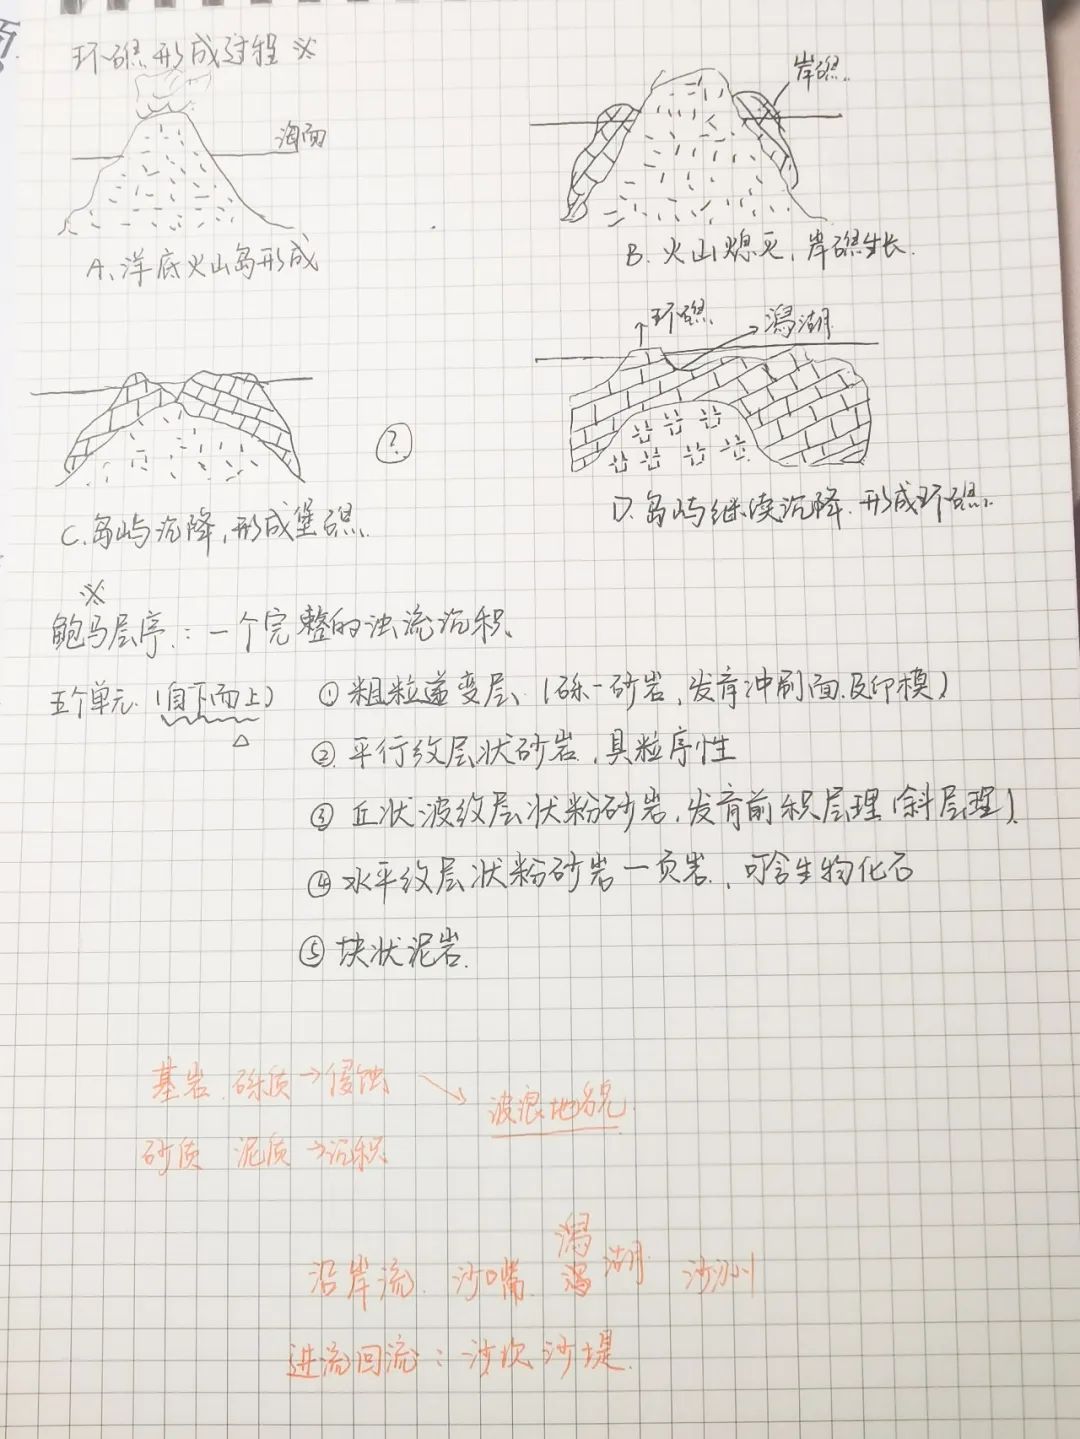 环礁形成过程 ※
海面
A、洋底火山岛形成
岸礁
B. 火山熄灭，岸礁生长.
C. 岛屿沉降，形成堡礁.
?
环礁
潟湖
D. 岛屿继续沉降.形成环礁.
※
鲍马层序：一个完整的浊流沉积
五个单元.（自下而上）
△
①粗粒递变层、（砾-砂岩，发育冲刷面及印模）
②.平行纹层状砂岩，具粒序性
③ 丘状波纹层状粉砂岩，发育前积层理（斜层理）
④水平纹层状粉砂岩一页岩，可含生物化石
⑤块状泥岩.
基岩 砾质→侵蚀
波浪地貌
砂质 泥质→沉积
沿岸流. 沙嘴. 潟湖 沙洲
潟
进流回流：沙坎 沙堤.